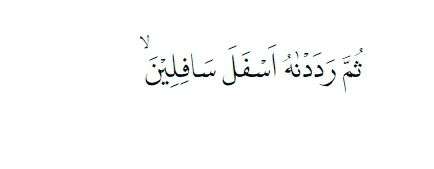 ثُمَّ رَدَدْنٰهُ اَسْفَلَ سَافِلِيْنَۙ